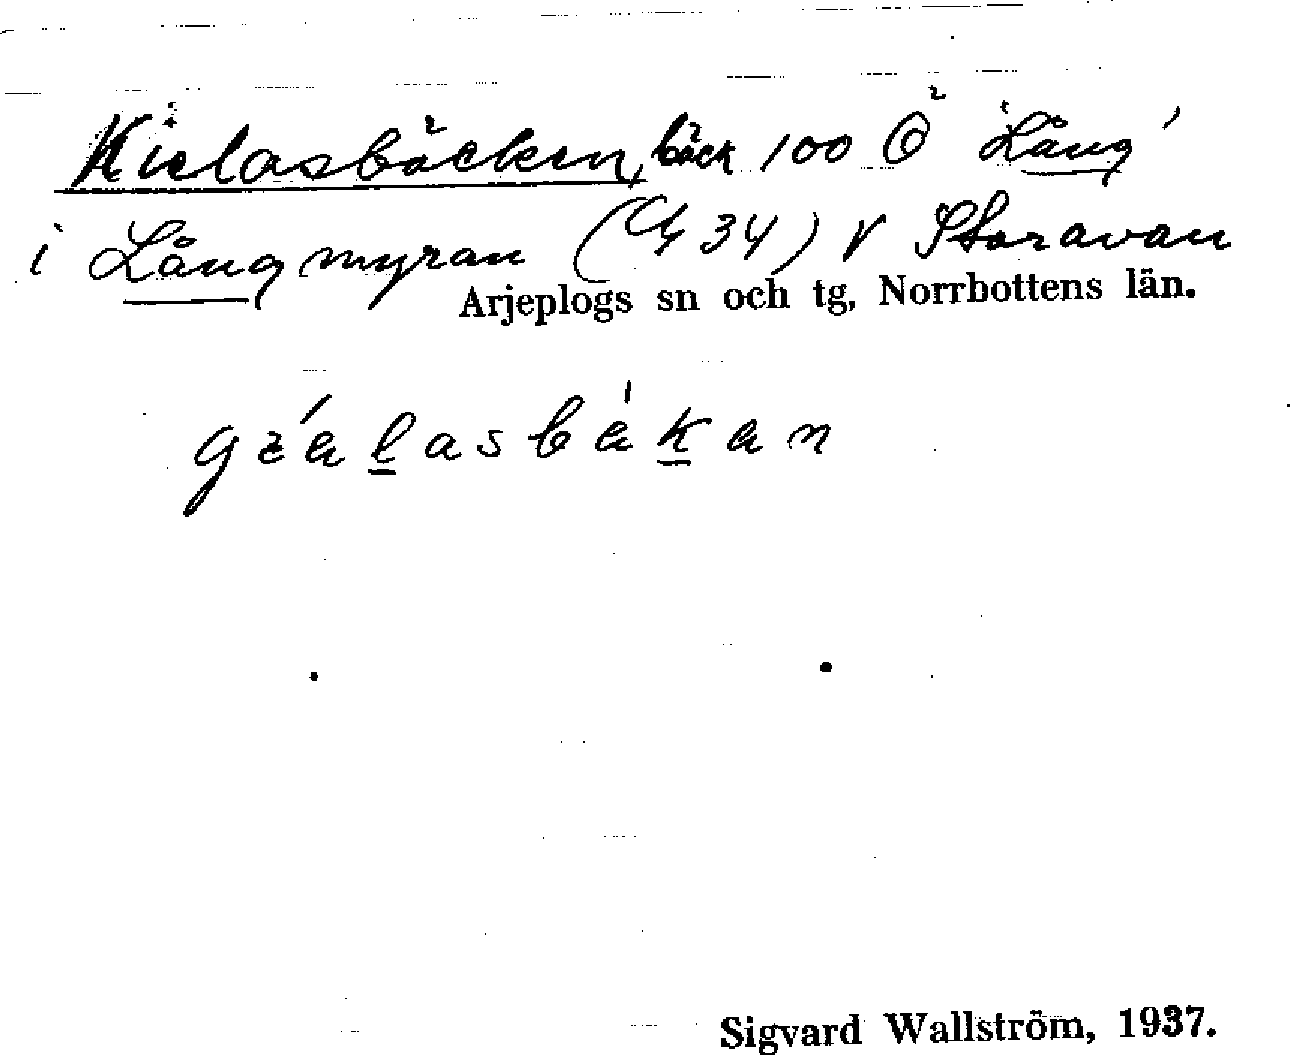 Kielasbäcken, bäck 100 Ö 'Lång'
i Långmyran (G 34) V Storavan
Arjeplogs sn och tg, Norrbottens län.
gzálasbákan
Sigvard Wallström, 1937.